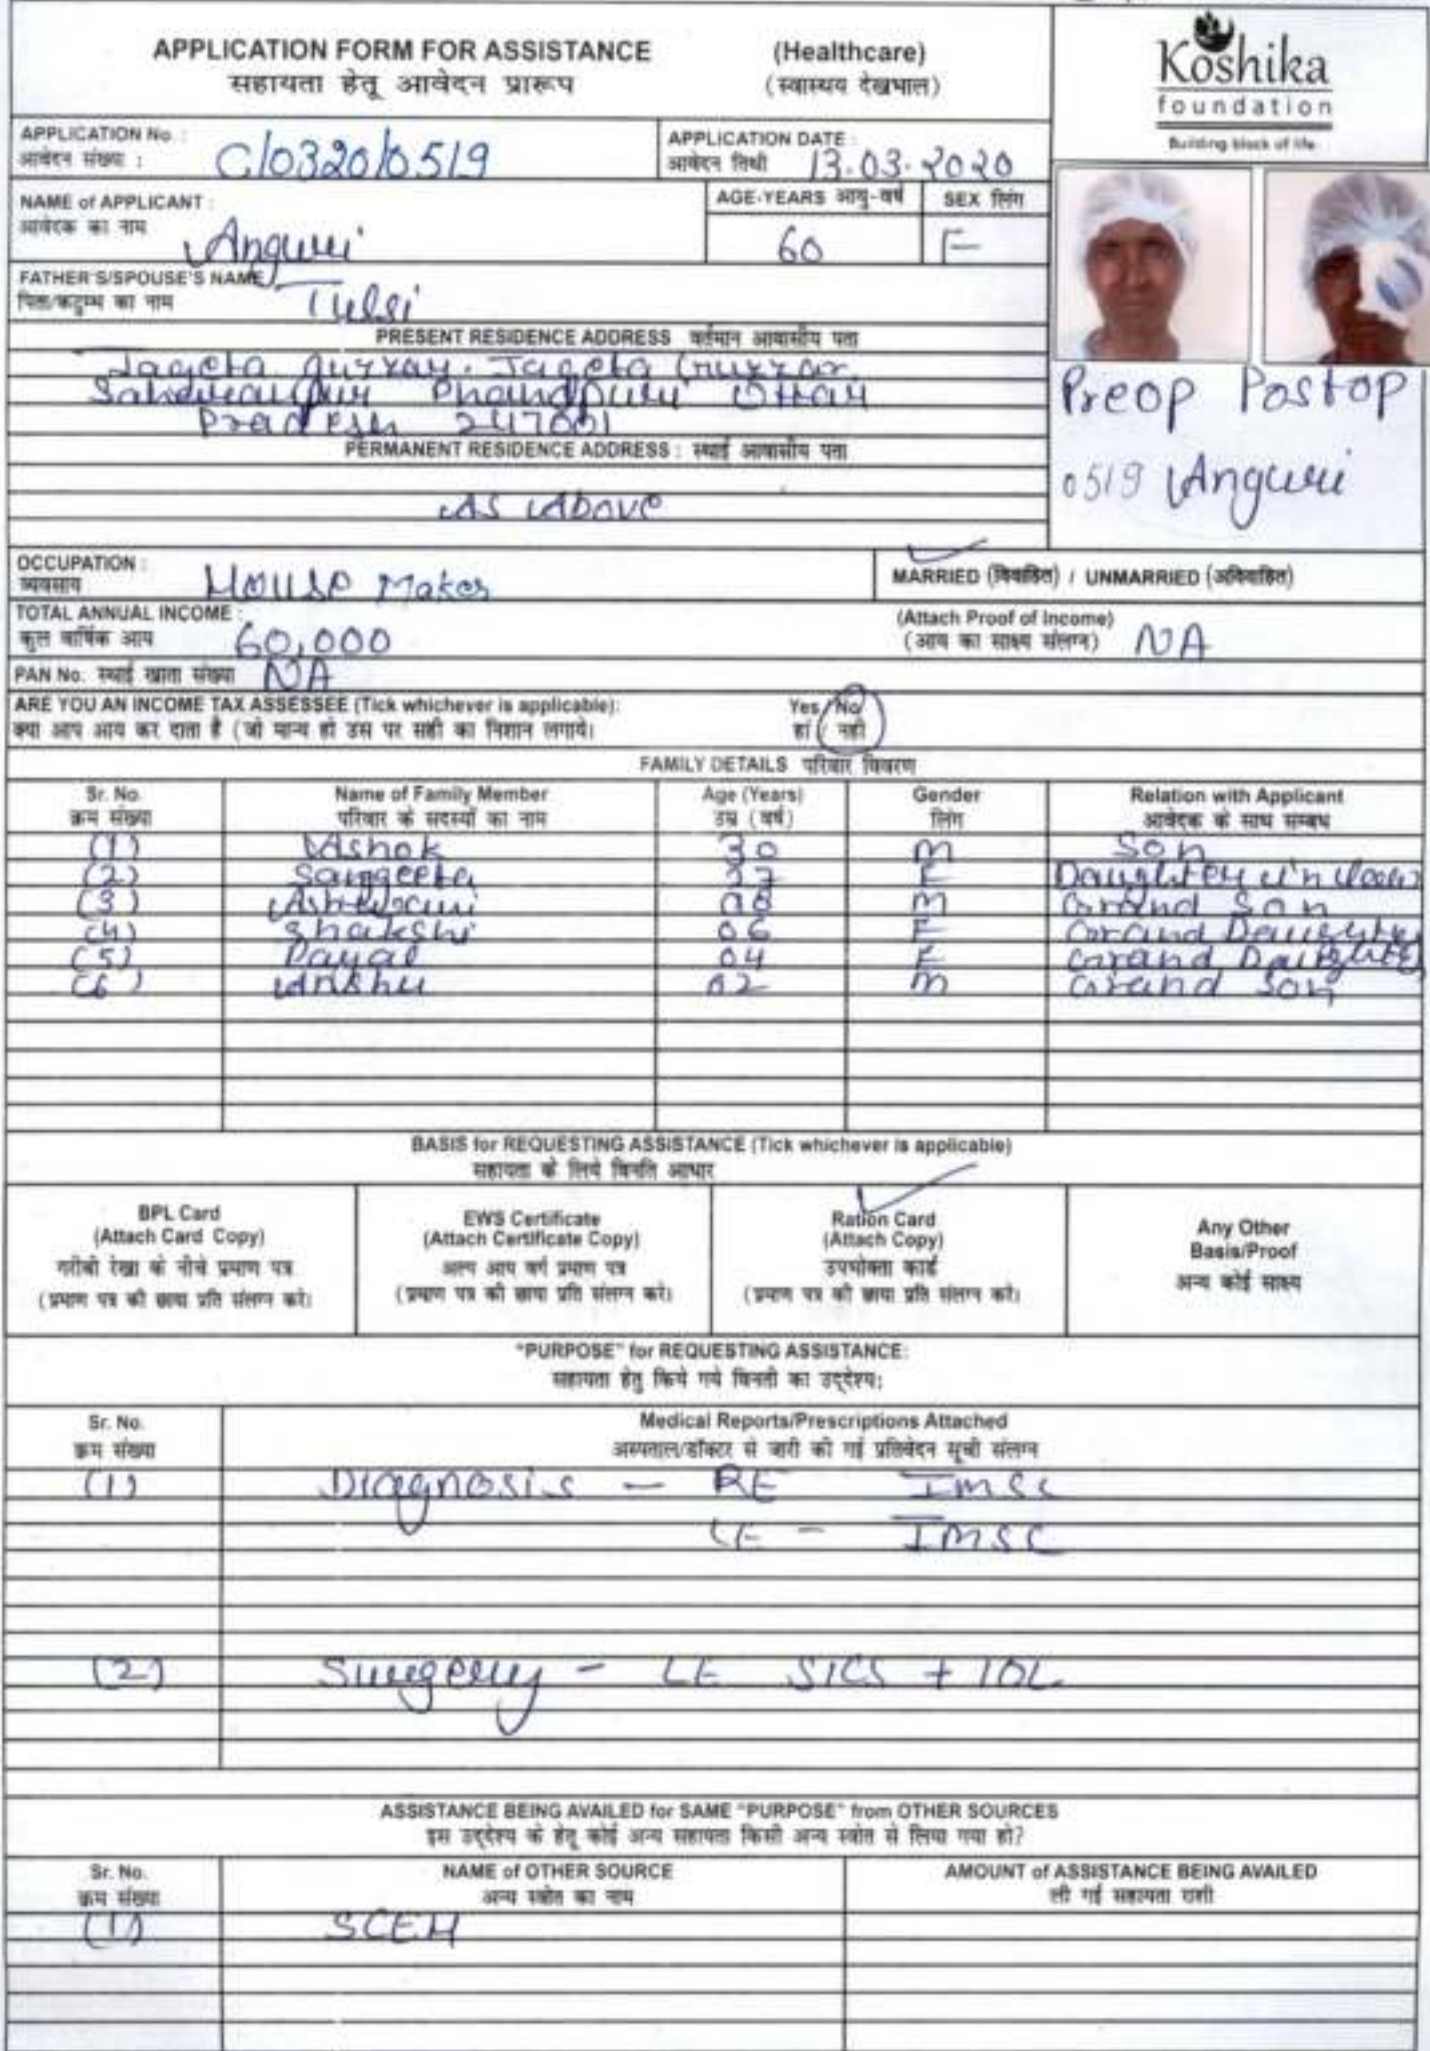 APPLICATION FORM FOR ASSISTANCE (Healthcare)
सहायता हेतू आवेदन प्रारूप (स्वास्थय देखभाल)
Koshika
foundation
Building block of life
APPLICATION No. :
आवेदन संख्या : C/0320/0519
APPLICATION DATE :
आवेदन तिथी 13.03.2020
NAME of APPLICANT :
आवेदक का नाम Anguri
AGE-YEARS आयु-वर्ष 60
SEX लिंग F
FATHER'S/SPOUSE'S NAME
पिता/कटुम्ब का नाम Tulsi
PRESENT RESIDENCE ADDRESS वर्तमान आवासीय पता
Jageta Gurrar, Jageta Gurrar
Saharanpur Uttar
Pradesh 247001
Preop Postop
0519 Anguri
PERMANENT RESIDENCE ADDRESS : स्थाई आवासीय पता
As Above
OCCUPATION :
व्यवसाय House Maker
MARRIED (विवाहित) / UNMARRIED (अविवाहित)
TOTAL ANNUAL INCOME :
कुल वार्षिक आय 60,000
(Attach Proof of Income)
(आय का साक्ष्य संलग्न) NA
PAN No. स्थाई खाता संख्या NA
ARE YOU AN INCOME TAX ASSESSEE (Tick whichever is applicable): Yes / No
क्या आप आय कर दाता है (जो मान्य हो उस पर सही का निशान लगाये। हां / नही
FAMILY DETAILS परिवार विवरण
Sr. No. Name of Family Member Age (Years) Gender Relation with Applicant
क्रम संख्या परिवार के सदस्यों का नाम उम्र (वर्ष) लिंग आवेदक के साथ सम्बध
(1) Ashok 30 M Son
(2) Sangeeta 27 F Daughter in law
(3) Ashwani 08 M Grand Son
(4) Shakshi 06 F Grand Daughter
(5) Payal 04 F Grand Daughter
(6) Anshu 02 M Grand Son
BASIS for REQUESTING ASSISTANCE (Tick whichever is applicable)
सहायता के लिये विनति आधार
BPL Card
(Attach Card Copy)
गरीबी रेखा के नीचे प्रमाण पत्र
(प्रमाण पत्र की छाया प्रति संलग्न करे)
EWS Certificate
(Attach Certificate Copy)
अल्प आय वर्ग प्रमाण पत्र
(प्रमाण पत्र की छाया प्रति संलग्न करे)
Ration Card
(Attach Copy)
उपभोक्ता कार्ड
(प्रमाण पत्र की छाया प्रति संलग्न करे)
Any Other
Basis/Proof
अन्य कोई साक्ष्य
"PURPOSE" for REQUESTING ASSISTANCE:
सहायता हेतु किये गये विनती का उद्देश्य:
Sr. No. Medical Reports/Prescriptions Attached
क्रम संख्या अस्पताल/डॉक्टर से जारी की गई प्रतिवेदन सूची संलग्न
(1) Diagnosis - RE IMSC
LE - IMSC
(2) Surgery - LE SICS + IOL
ASSISTANCE BEING AVAILED for SAME "PURPOSE" from OTHER SOURCES
इस उद्देश्य के हेतू कोई अन्य सहायता किसी अन्य स्त्रोत से लिया गया हो?
Sr. No. NAME of OTHER SOURCE AMOUNT of ASSISTANCE BEING AVAILED
क्रम संख्या अन्य स्त्रोत का नाम ली गई सहायता राशी
(1) SCEH